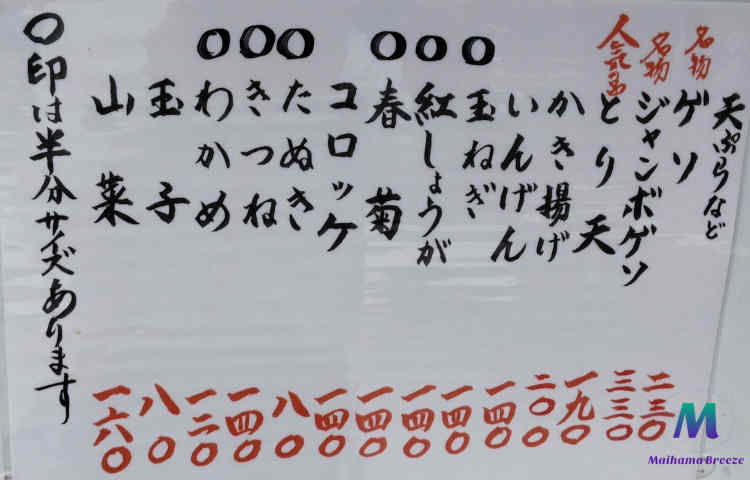 天ぷらなど
名物 ゲソ 二三〇
名物 ジャンボゲソ 三三〇
人気の品 とり天 一九〇
かき揚げ 二〇〇
いんげん 一四〇
〇 玉ねぎ 一四〇
〇 紅しょうが 一四〇
〇 春菊 一四〇
コロッケ 一四〇
〇 たぬき 八〇
〇 きつね 一四〇
〇 わかめ 一二〇
玉子 八〇
山菜 一六〇
〇印は半分サイズあります
M
Maihama Breeze